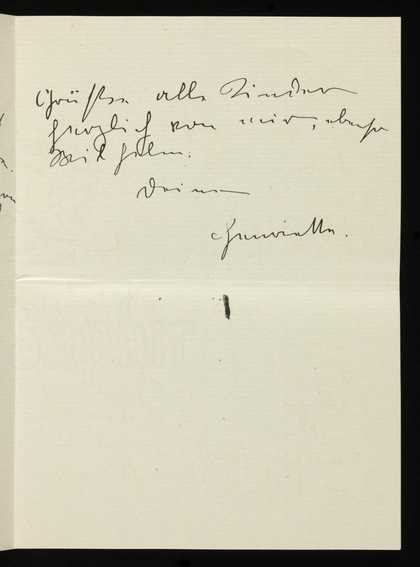 Grüße alle Kinder
herzlich von mir, ebenso
Wilhelm.
Deine
Henriette.